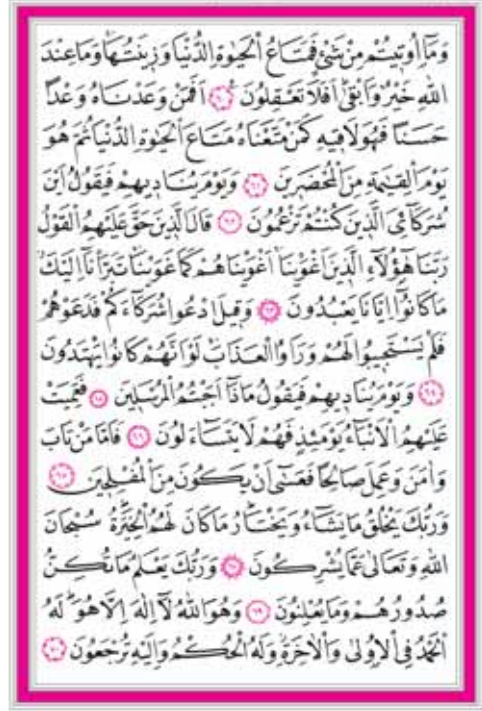 وَمَٓا اُو۫ت۪يتُمْ مِنْ شَيْءٍ فَمَتَاعُ الْحَيٰوةِ الدُّنْيَا وَز۪ينَتُهَا وَمَا عِنْدَ
اللّٰهِ خَيْرٌ وَاَبْقٰى اَفَلَا تَعْقِلُونَ ﴿٦٠﴾ اَفَمَنْ وَعَدْنَاهُ وَعْدًا
حَسَنًا فَهُوَ لَاق۪يهِ كَمَنْ مَتَّعْنَاهُ مَتَاعَ الْحَيٰوةِ الدُّنْيَا ثُمَّ هُوَ
يَوْمَ الْقِيٰمَةِ مِنَ الْمُحْضَر۪ينَ ﴿٦١﴾ وَيَوْمَ يُنَاد۪يهِمْ فَيَقُولُ اَيْنَ
شُرَكَٓاءِيَ الَّذ۪ينَ كُنْتُمْ تَزْعُمُونَ ﴿٦٢﴾ قَالَ الَّذ۪ينَ حَقَّ عَلَيْهِمُ الْقَوْلُ
رَبَّنَا هٰٓؤُ۬لَٓاءِ الَّذ۪ينَ اَغْوَيْنَا اَغْوَيْنَاهُمْ كَمَا غَوَيْنَا تَبَرَّأْنَٓا اِلَيْكَ
مَا كَانُٓوا اِيَّانَا يَعْبُدُونَ ﴿٦٣﴾ وَق۪يلَ ادْعُوا شُرَكَٓاءَكُمْ فَدَعَوْهُمْ
فَلَمْ يَسْتَج۪يبُوا لَهُمْ وَرَاَوُا الْعَذَابَ لَوْ اَنَّهُمْ كَانُوا يَهْتَدُونَ
﴿٦٤﴾ وَيَوْمَ يُنَاد۪يهِمْ فَيَقُولُ مَاذَٓا اَجَبْتُمُ الْمُرْسَل۪ينَ ﴿٦٥﴾ فَعَمِيَتْ
عَلَيْهِمُ الْاَنْبَٓاءُ يَوْمَئِذٍ فَهُمْ لَا يَتَسَٓاءَلُونَ ﴿٦٦﴾ فَاَمَّا مَنْ تَابَ
وَاٰمَنَ وَعَمِلَ صَالِحًا فَعَسٰٓى اَنْ يَكُونَ مِنَ الْمُفْلِح۪ينَ ﴿٦٧﴾
وَرَبُّكَ يَخْلُقُ مَا يَشَٓاءُ وَيَخْتَارُ مَا كَانَ لَهُمُ الْخِيَرَةُ سُبْحَانَ
اللّٰهِ وَتَعَالٰى عَمَّا يُشْرِكُونَ ﴿٦٨﴾ وَرَبُّكَ يَعْلَمُ مَا تُكِنُّ
صُدُورُهُمْ وَمَا يُعْلِنُونَ ﴿٦٩﴾ وَهُوَ اللّٰهُ لَٓا اِلٰهَ اِلَّا هُوَ لَهُ
الْحَمْدُ فِي الْاُو۫لٰى وَالْاٰخِرَةِ وَلَهُ الْحُكْمُ وَاِلَيْهِ تُرْجَعُونَ ﴿٧٠﴾